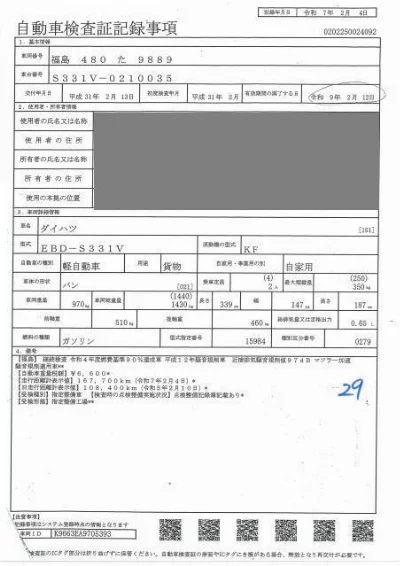 記録年月日 令和 7年 2月 4日
自動車検査証記録事項 0202250024092
1．基本情報
車両番号 福島 480 た 9889
車台番号 S331V-0210035
交付年月日 平成31年 2月13日 初度検査年月 平成31年 2月 有効期間の満了する日 令和 9年 2月 12日
2．使用者・所有者情報
使用者の氏名又は名称
使用者の住所
所有者の氏名又は名称
所有者の住所
使用の本拠の位置
3．車両詳細情報
車名 ダイハツ [161]
型式 EBD-S331V 原動機の型式 KF
自動車の種別 軽自動車 用途 貨物 自家用・事業用の別 自家用
車体の形状 バン [021] 乗車定員 (4) 2人 最大積載量 (250) 350kg
車両重量 970kg 車両総重量 (1440) 1430kg 長さ 339cm 幅 147cm 高さ 187cm
前軸重 510kg 後軸重 460kg 総排気量又は定格出力 0.65L
燃料の種類 ガソリン 型式指定番号 15984 類別区分番号 0279
4．備考
[福島] 継続検査 令和4年度燃費基準90%達成車 平成12年騒音規制車 近接排気騒音規制値97dB マフラー加速
騒音規制適用車**
[自動車重量税額] ¥6,600*
[走行距離計表示値] 167,700km (令和7年2月4日)*
[旧走行距離計表示値] 108,400km (令和5年2月10日)*
[受検種別] 指定整備車 [検査時の点検整備実施状況] 点検整備記録簿記載あり*
[受検形態] 指定整備工場**
29
[注意事項]
記録事項はシステム登録時点の情報となります
車両ID K9663EA9705393
検査証のICタグ部分は折り曲げずに保管ください。自動車検査証の券面やICタグにき損がある場合、無効となり再交付が必要です。